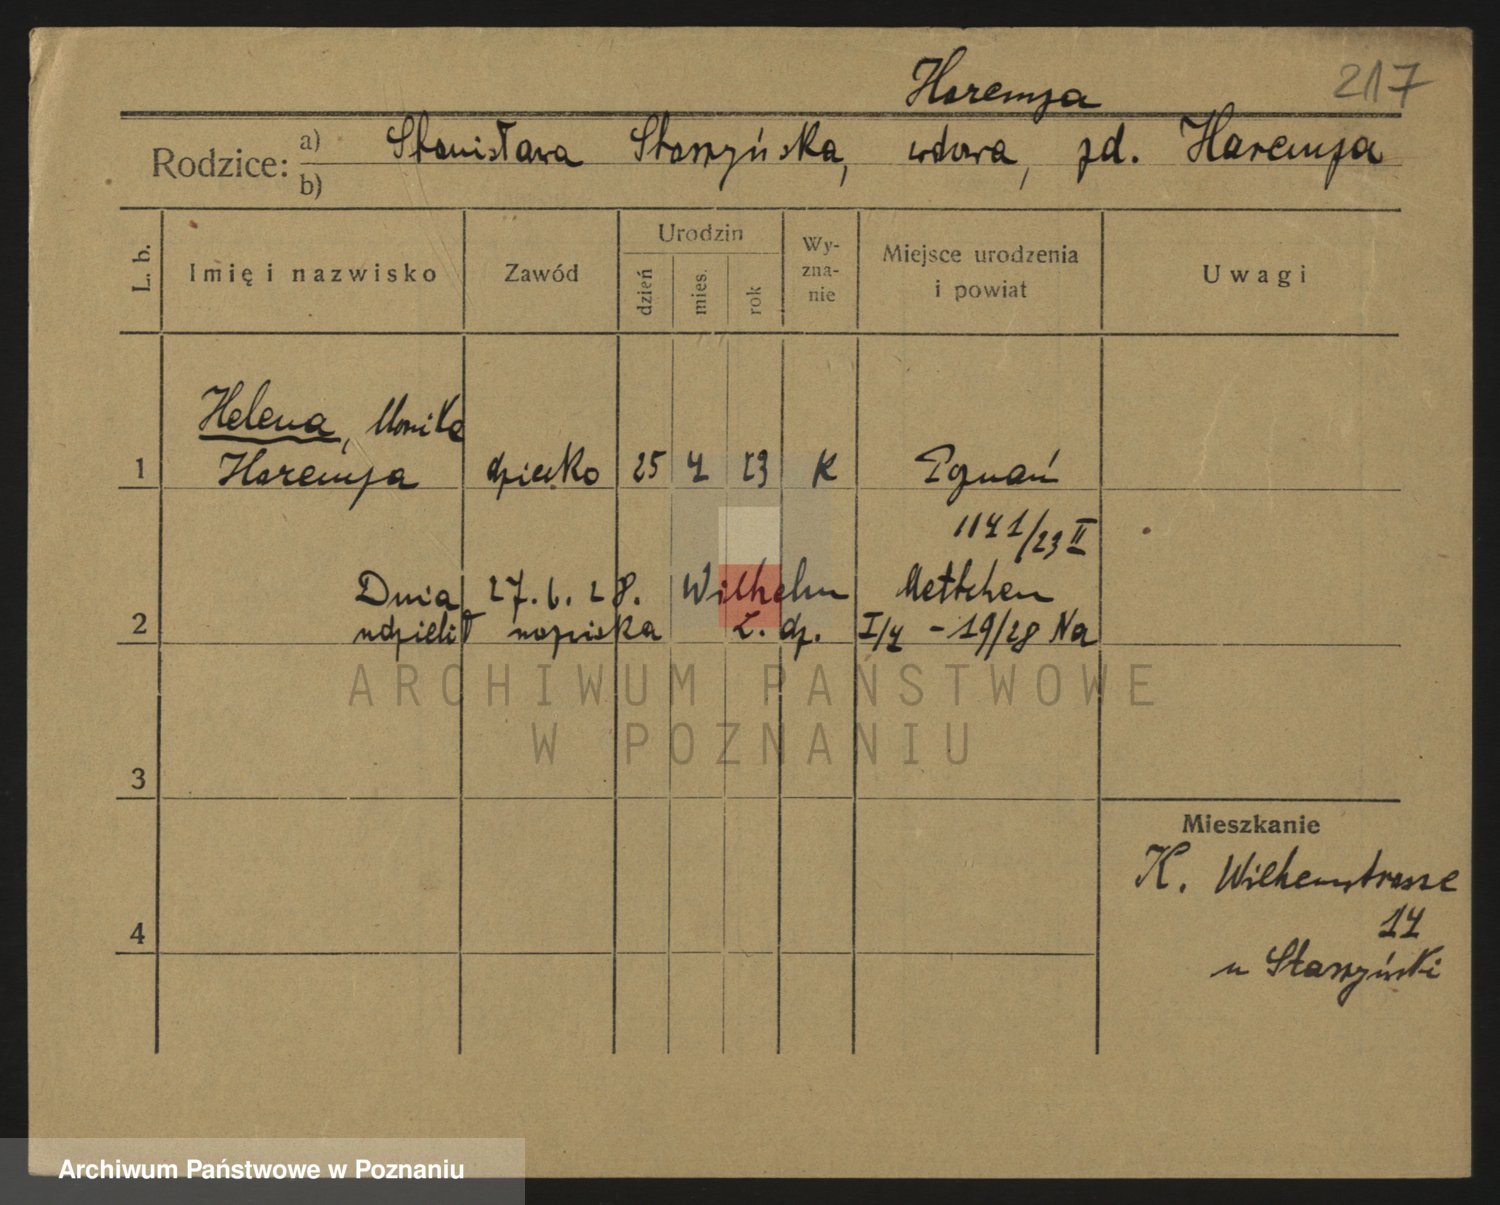 Haremza
217
Rodzice: a) Stanisława Staszyńska, wdowa, zd. Haremza
b)
L. b.
Imię i nazwisko
Zawód
Urodzin
dzień
mies.
rok
Wy-
zna-
nie
Miejsce urodzenia
i powiat
Uwagi
Helena, Monika
1 Haremza dziecko 25 4 23 K Poznań
1141/23 II
Dnia 27. 6. 28. Wilhelm Mettchen
2 udzielił nazwiska L. dz. I/4 - 19/28 Na
ARCHIWUM PAŃSTWOWE
W POZNANIU
3
Mieszkanie
K. Wilhemstrasse
14
4
u Staszyński
Archiwum Państwowe w Poznaniu